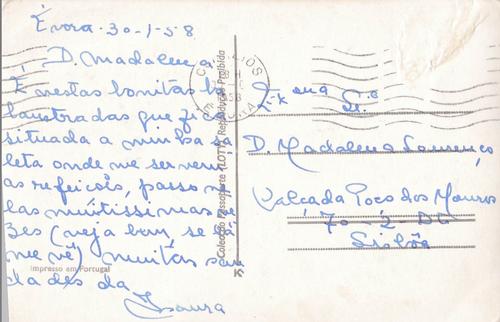 Évora-30-1-58
D. Madalena.
É nestas bonitas ba
laustradas que fica
situada a minha sa
leta onde me servem
as refeições, passo n
elas muitissimas ve
zes (veja bem se
me vê) muitas sau
dades da
Isaura
Impresso em Portugal
Colecção Passaporte "LOTY" Reprodução Proibida
CORREIOS
58
Ex.ma Sr.a
D. Madalena Lourenço
Calçada Poço dos Mouros
70-2-Dt
Lisbôa